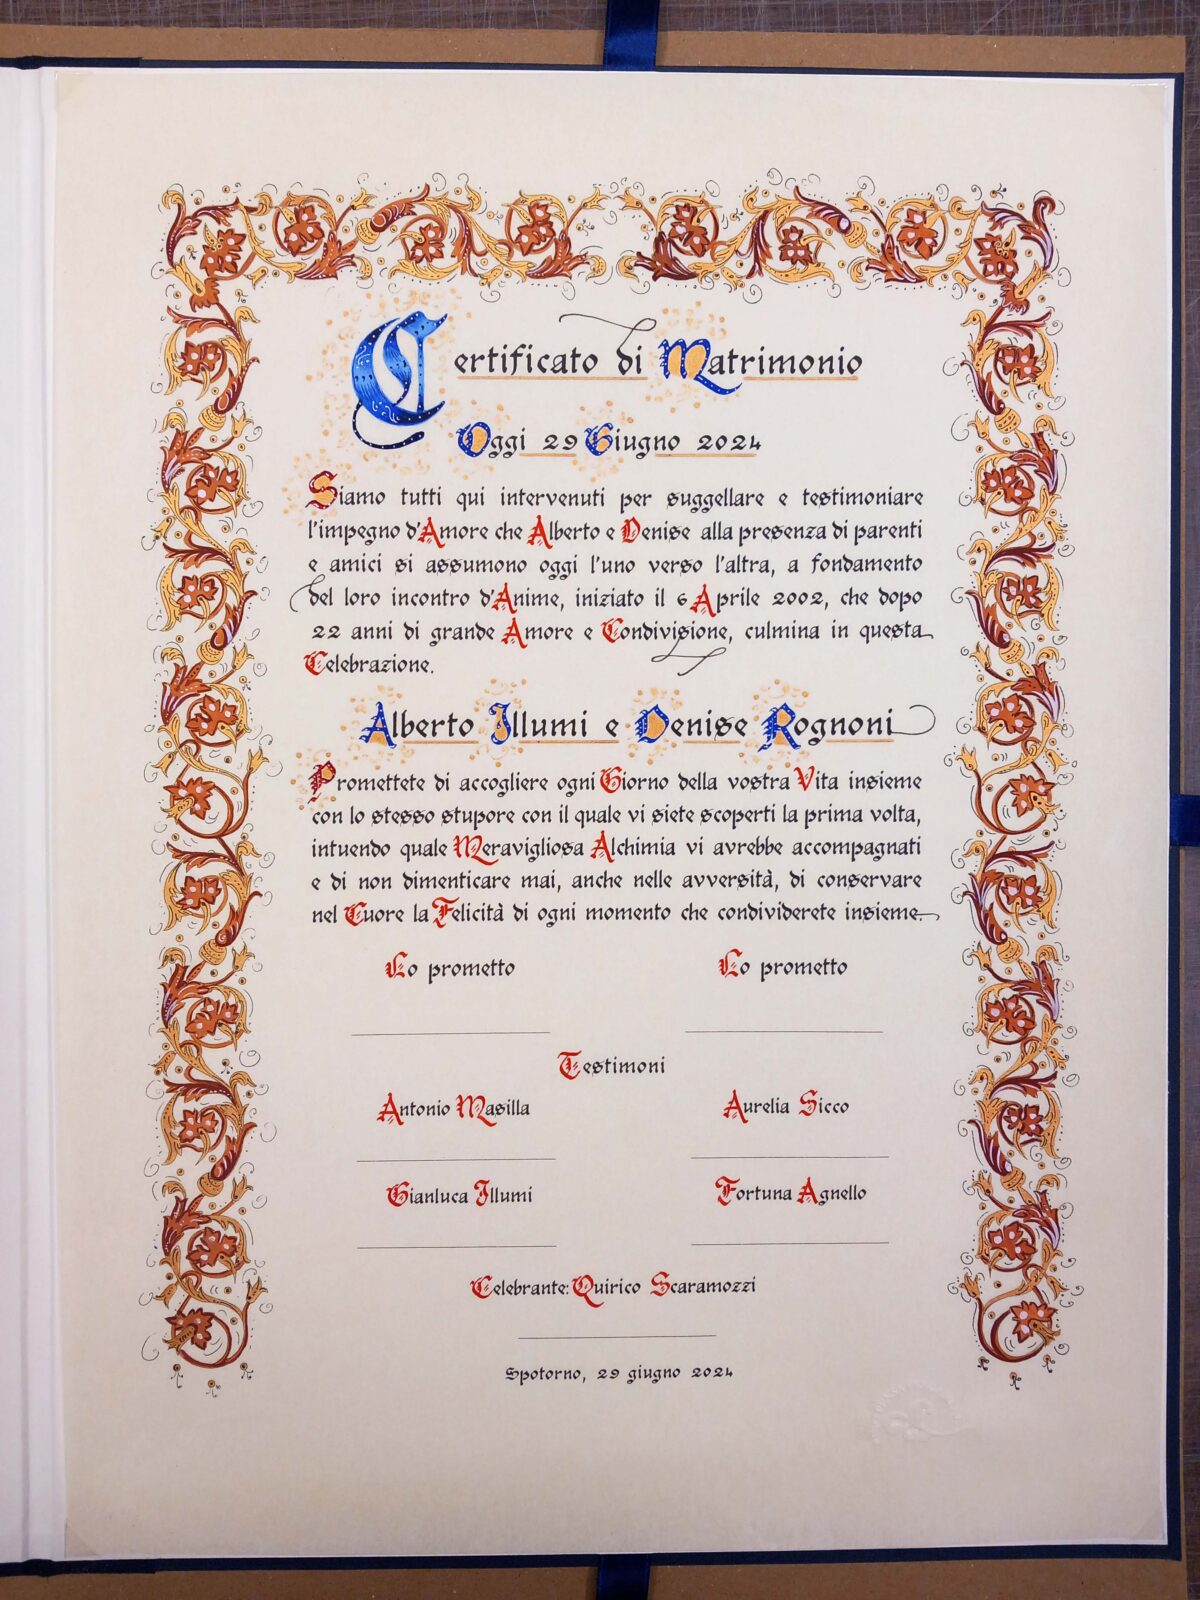 Certificato di Matrimonio
Oggi 29 Giugno 2024
Siamo tutti qui intervenuti per suggellare e testimoniare
l'impegno d'Amore che Alberto e Denise alla presenza di parenti
e amici si assumono oggi l'uno verso l'altra, a fondamento
del loro incontro d'Anime, iniziato il 6 Aprile 2002, che dopo
22 anni di grande Amore e Condivisione, culmina in questa
Celebrazione.
Alberto Illumi e Denise Rognoni
Promettete di accogliere ogni Giorno della vostra Vita insieme
con lo stesso stupore con il quale vi siete scoperti la prima volta,
intuendo quale Meravigliosa Alchimia vi avrebbe accompagnati
e di non dimenticare mai, anche nelle avversità, di conservare
nel Cuore la Felicità di ogni momento che condividerete insieme.
Lo prometto Lo prometto
Testimoni
Antonio Masilla Aurelia Sicco
Gianluca Illumi Fortuna Agnello
Celebrante: Quirico Scaramozzi
Spotorno, 29 giugno 2024